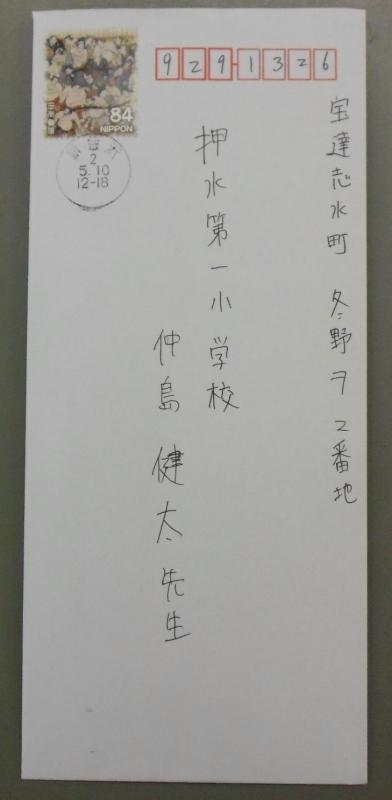 84
NIPPON
日本郵便
2
5.10
12-18
929-1326
宝達志水町 冬野ヲ2番地
押水第一小学校
仲島 健太先生